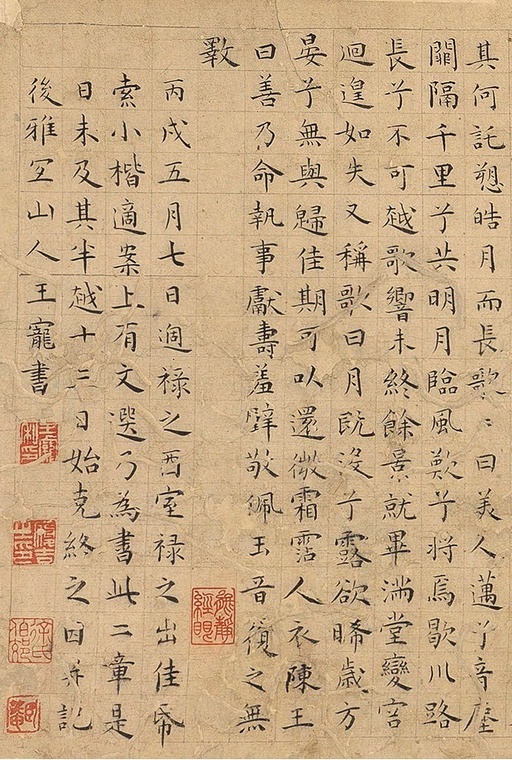 其何託愬皓月而長歌〻曰美人邁兮音塵
闕隔千里兮共明月臨風歎兮將焉歇川路
長兮不可越歌響未終餘景就畢滿堂變容
迴遑如失又稱歌曰月既沒兮露欲晞歲方
晏兮無與歸佳期可以還微霜霑人衣陳王
曰善乃命執事獻壽羞璧敬佩玉音復之無
斁
丙戌五月七日過祿之西室祿之出佳帋
索小楷適案上有文選乃為書此二章是
日未及其半越十三日始克終之因并記
後雅宜山人王寵書